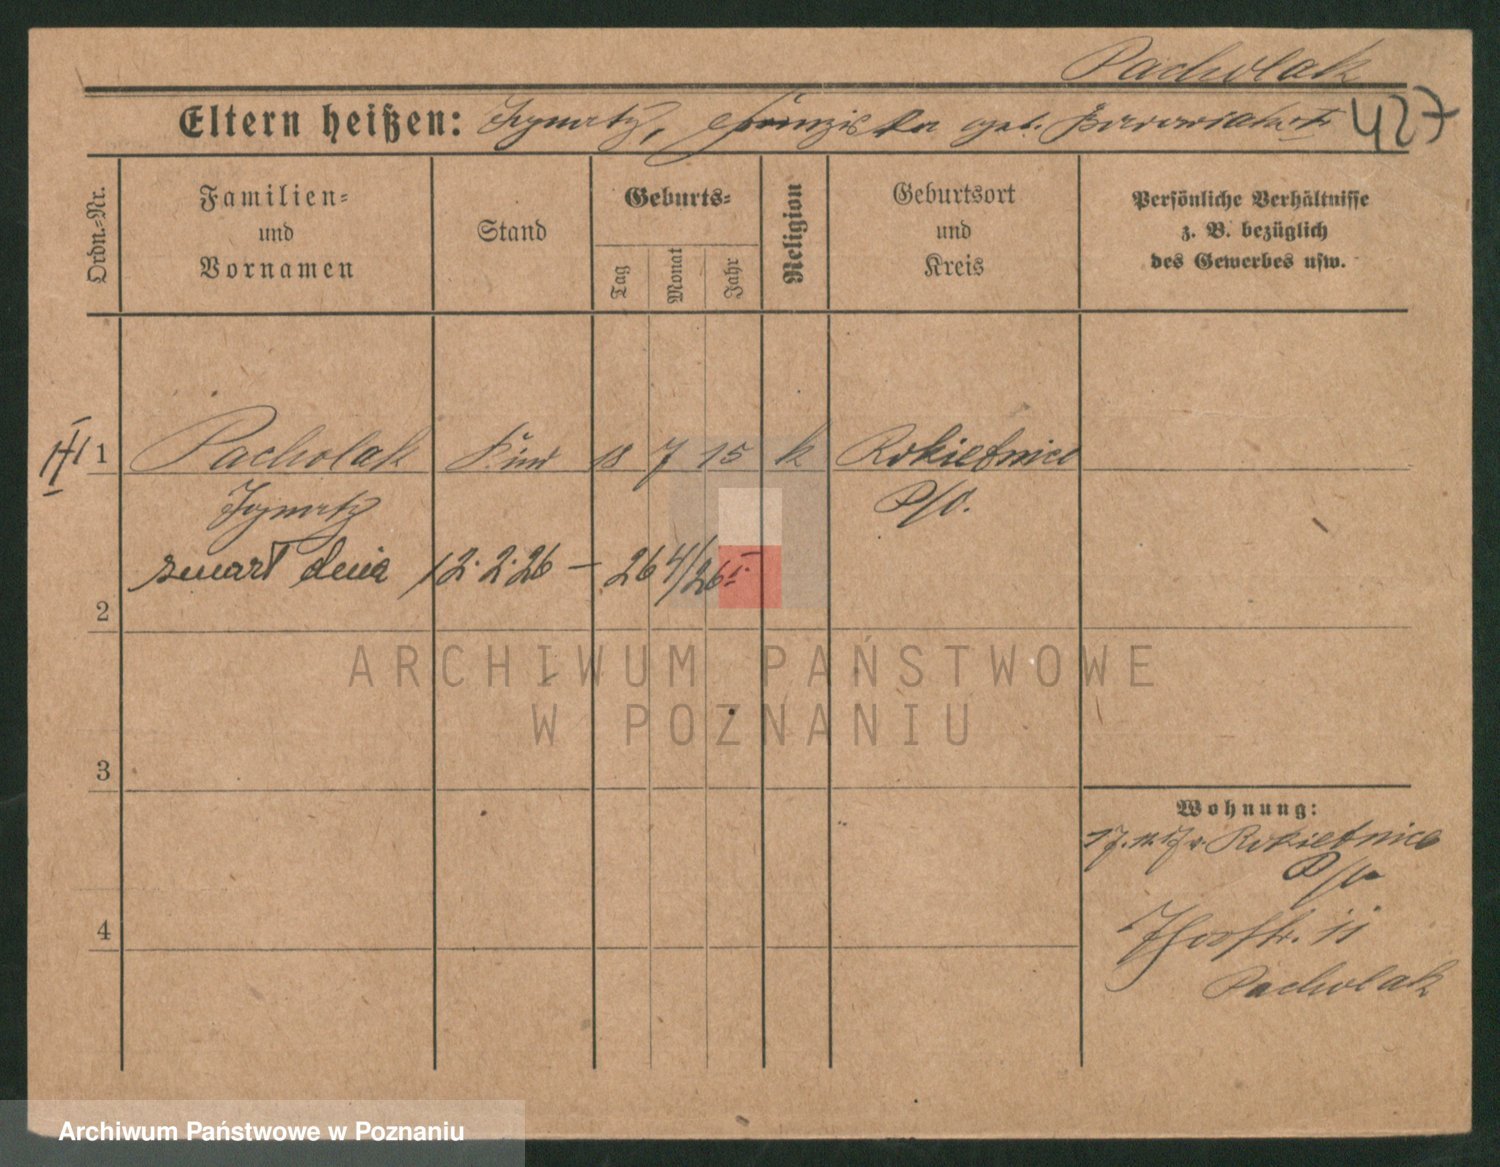 Pacholak
Eltern heißen: Ignatz, Franziska geb. 427
Ordn.-Nr.
Familien- und Vornamen
Stand
Geburts-
Tag
Monat
Jahr
Religion
Geburtsort und Kreis
Persönliche Verhältnisse
z. B. bezüglich
des Gewerbes usw.
III 1 Pacholak Kind 18 7 15 k Rokietnica
Ignatz P/O.
zmarł dnia 12.2.26 – 26 4/26 I.
2
ARCHIWUM PAŃSTWOWE
W POZNANIU
3
Wohnung:
17.11.17 v. Rokietnica
P/O
4
11
Pacholak
Archiwum Państwowe w Poznaniu